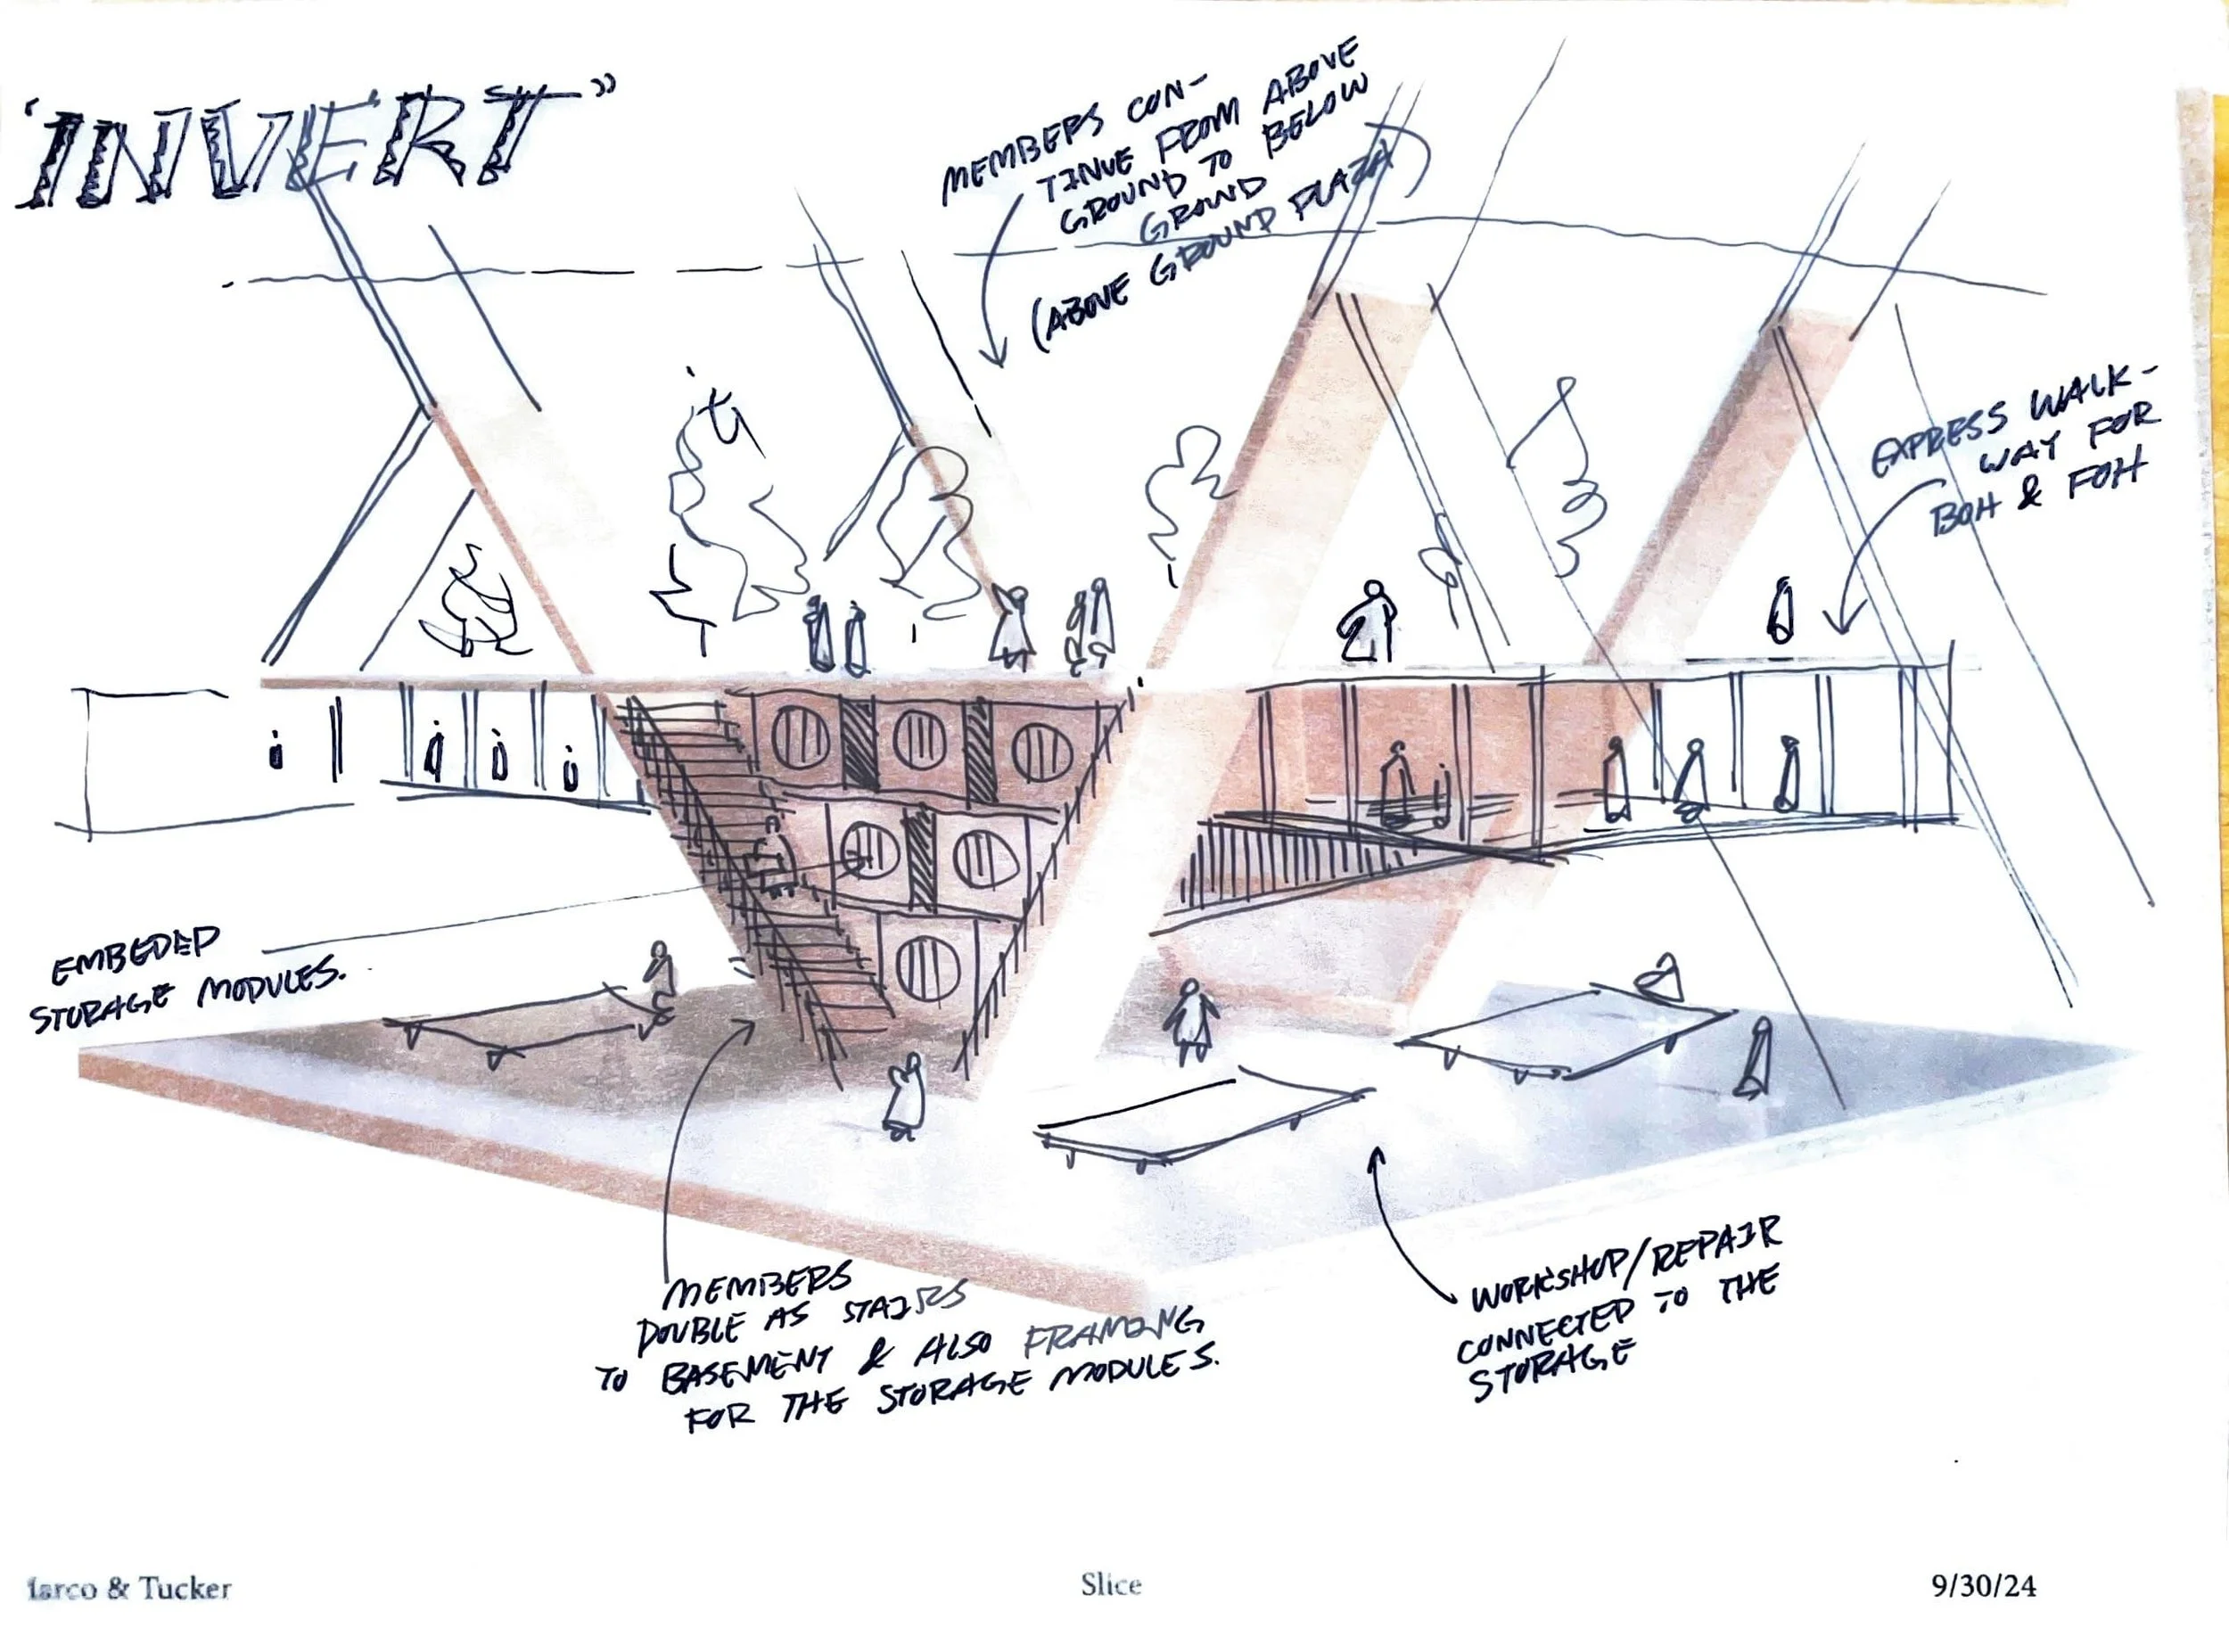 "INVERT"
MEMBERS CON-
TINUE FROM ABOVE
GROUND TO BELOW
GROUND
(ABOVE GROUND PLAZA)
EXPRESS WALK-
WAY FOR
BOH & FOH
EMBEDED
STORAGE MODULES.
MEMBERS
DOUBLE AS STAIRS
TO BASEMENT & ALSO FRAMING
FOR THE STORAGE MODULES.
WORKSHOP/REPAIR
CONNECTED TO THE
STORAGE
arco & Tucker
Slice
9/30/24